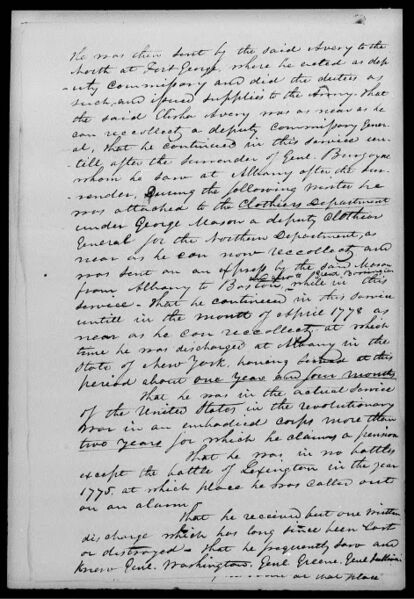 He was then sent by the said Avery to the
North at Fort George, where he acted as dep-
uty Commissary and did the duties as
such, and issued supplies to the Army. that
the said Elisha Avery was as near as he
can recollect a deputy commissary Gener-
al, that he continued in this service un-
till after the surrender of Genl. Burgoyne
whom he saw at Albany after the sur-
-render, During the following winter he
was attached to the Clothiers Department
under George Mason a deputy Clothier
General for the Northern Department, as
near as he can now recollect, and
was sent on an express by the said Mason
from Albany to Boston, while in this
service - That he continued in this service
untill in the month of April 1778 as
near as he can reccollect, at which
time he was discharged at Albany in the
State of New York, having served at this
period about one year and four months
That he was in the actual service
of the United States in the revolutionary
War in an embodied corps more than
two years for which he claims a pension
That he was in no battles
except the battle of Lexington in the year
1775, at which place he was called out
on an alarm
That he received but one written
discharge which has long since been lost
or distroyed - that he frequently saw and
knew Genl. Washington, Genl. Greene, Genl
at that place